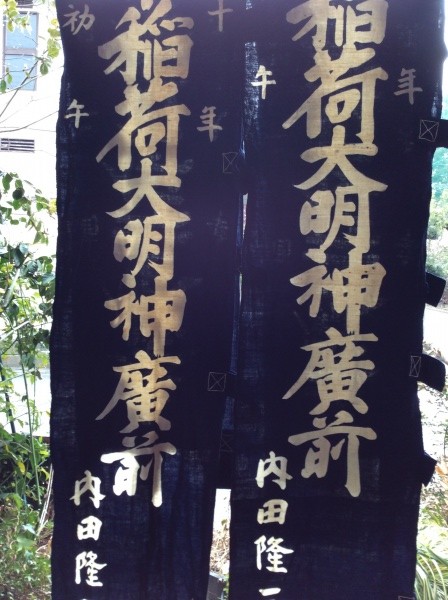 十年
稲荷大明神廣前
初午
内田隆一
年
稲荷大明神廣前
午
内田隆